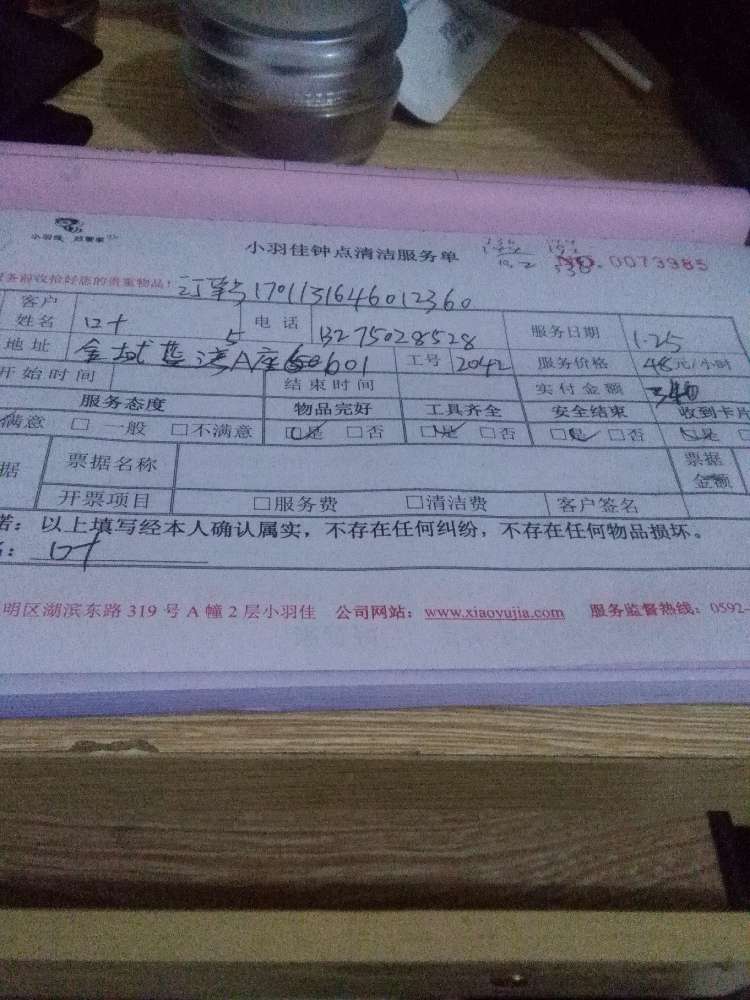 小羽佳钟点清洁服务单
NO.0073985
务前收拾好您的贵重物品! 订单号1701131646012360
客户姓名 叶 电话 13275028528 服务日期 1.25
地址 金域蓝湾A座601 工号 2042 服务价格 48元/小时
开始时间 结束时间 实付金额 340
服务态度 物品完好 工具齐全 安全结束 收到卡片
满意 □ 一般 □不满意 □是 □否 □是 □否 □是 □否 □是
据 票据名称 票据金额
开票项目 □服务费 □清洁费 客户签名
诺: 以上填写经本人确认属实,不存在任何纠纷,不存在任何物品损坏。
名: 叶
明区湖滨东路 319 号 A 幢 2 层小羽佳 公司网站: www.xiaoyujia.com 服务监督热线: 0592-